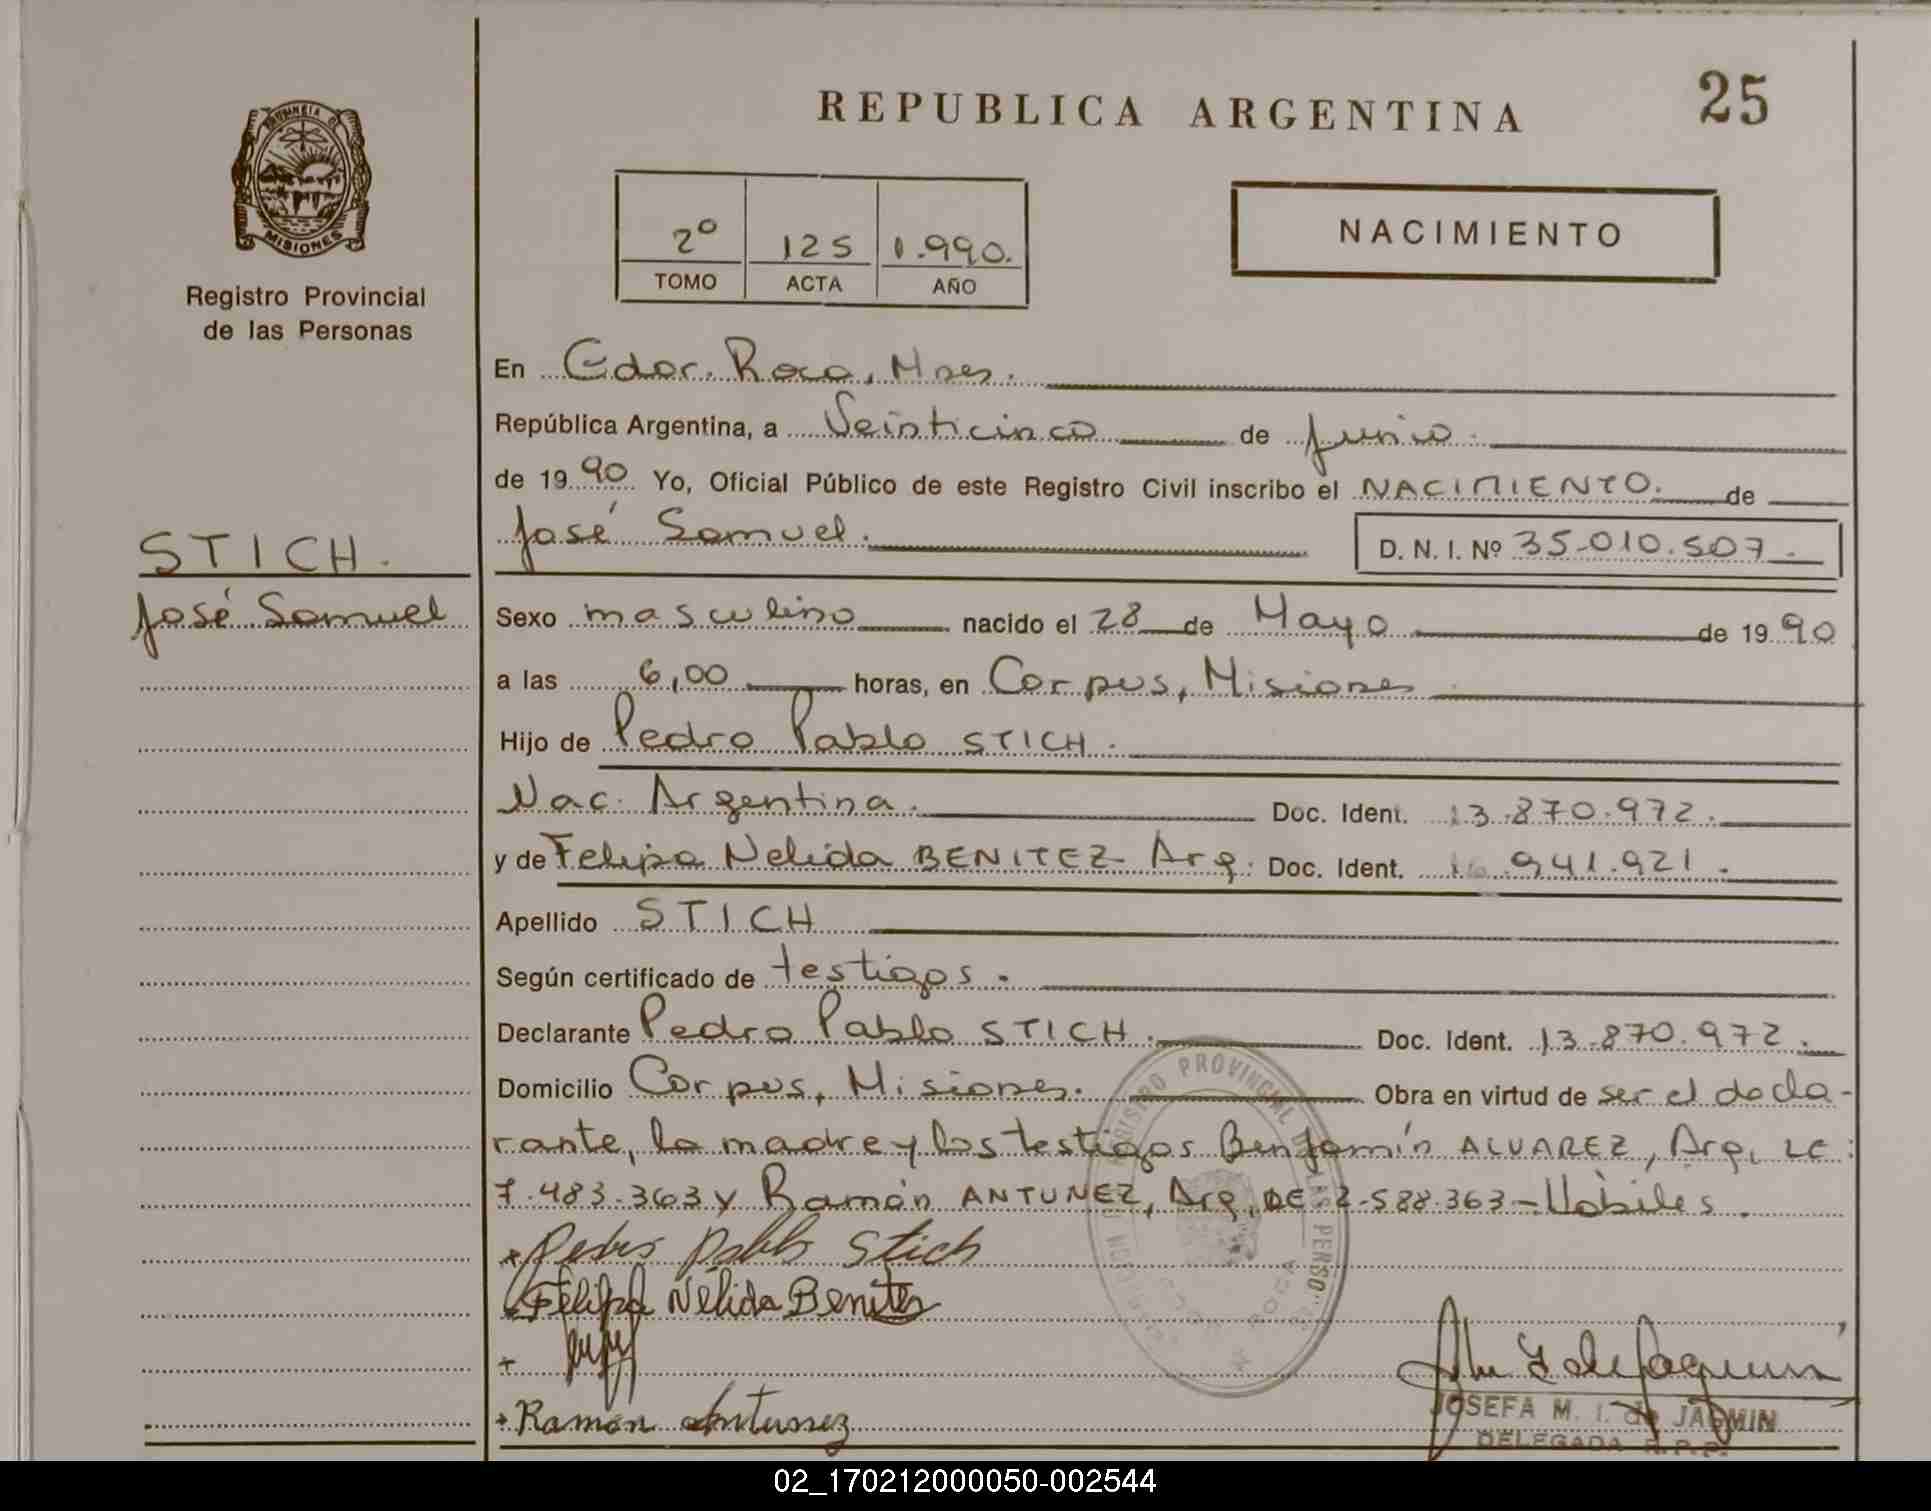 REPUBLICA ARGENTINA
25
PROVINCIA DE
MISIONES
Registro Provincial
de las Personas
2º 125 1.990.
TOMO ACTA AÑO
NACIMIENTO
En Gdor. Roca, Mnes.
República Argentina, a Veinticinco de Junio.
de 1990 Yo, Oficial Público de este Registro Civil inscribo el NACIMIENTO. de
José Samuel.
D. N. I. Nº 35.010.507.
STICH.
José Samuel
Sexo masculino nacido el 28 de Mayo de 1990
a las 6,00 horas, en Corpus, Misiones
Hijo de Pedro Pablo STICH.
Nac. Argentina. Doc. Ident. 13.870.972.
y de Felipa Nelida BENITEZ- Arg. Doc. Ident. 16.941.921.
Apellido STICH
Según certificado de testigos.
Declarante Pedro Pablo STICH. Doc. Ident. 13.870.972.
Domicilio Corpus, Misiones. Obra en virtud de ser el decla-
rante, la madre y los testigos Benjamín ALVAREZ, Arg, LE:
7.483.363 y Ramón ANTUNEZ, Arg, DE 2.588.363-Hábiles.
Pedro Pablo Stich
Felipa Nélida Benitez
Ramón Antunez
REGISTRO PROVINCIAL DE LAS PERSONAS
ROCA
JOSEFA M. I. de JAQMIN
DELEGADA R.P.P.
02_170212000050-002544